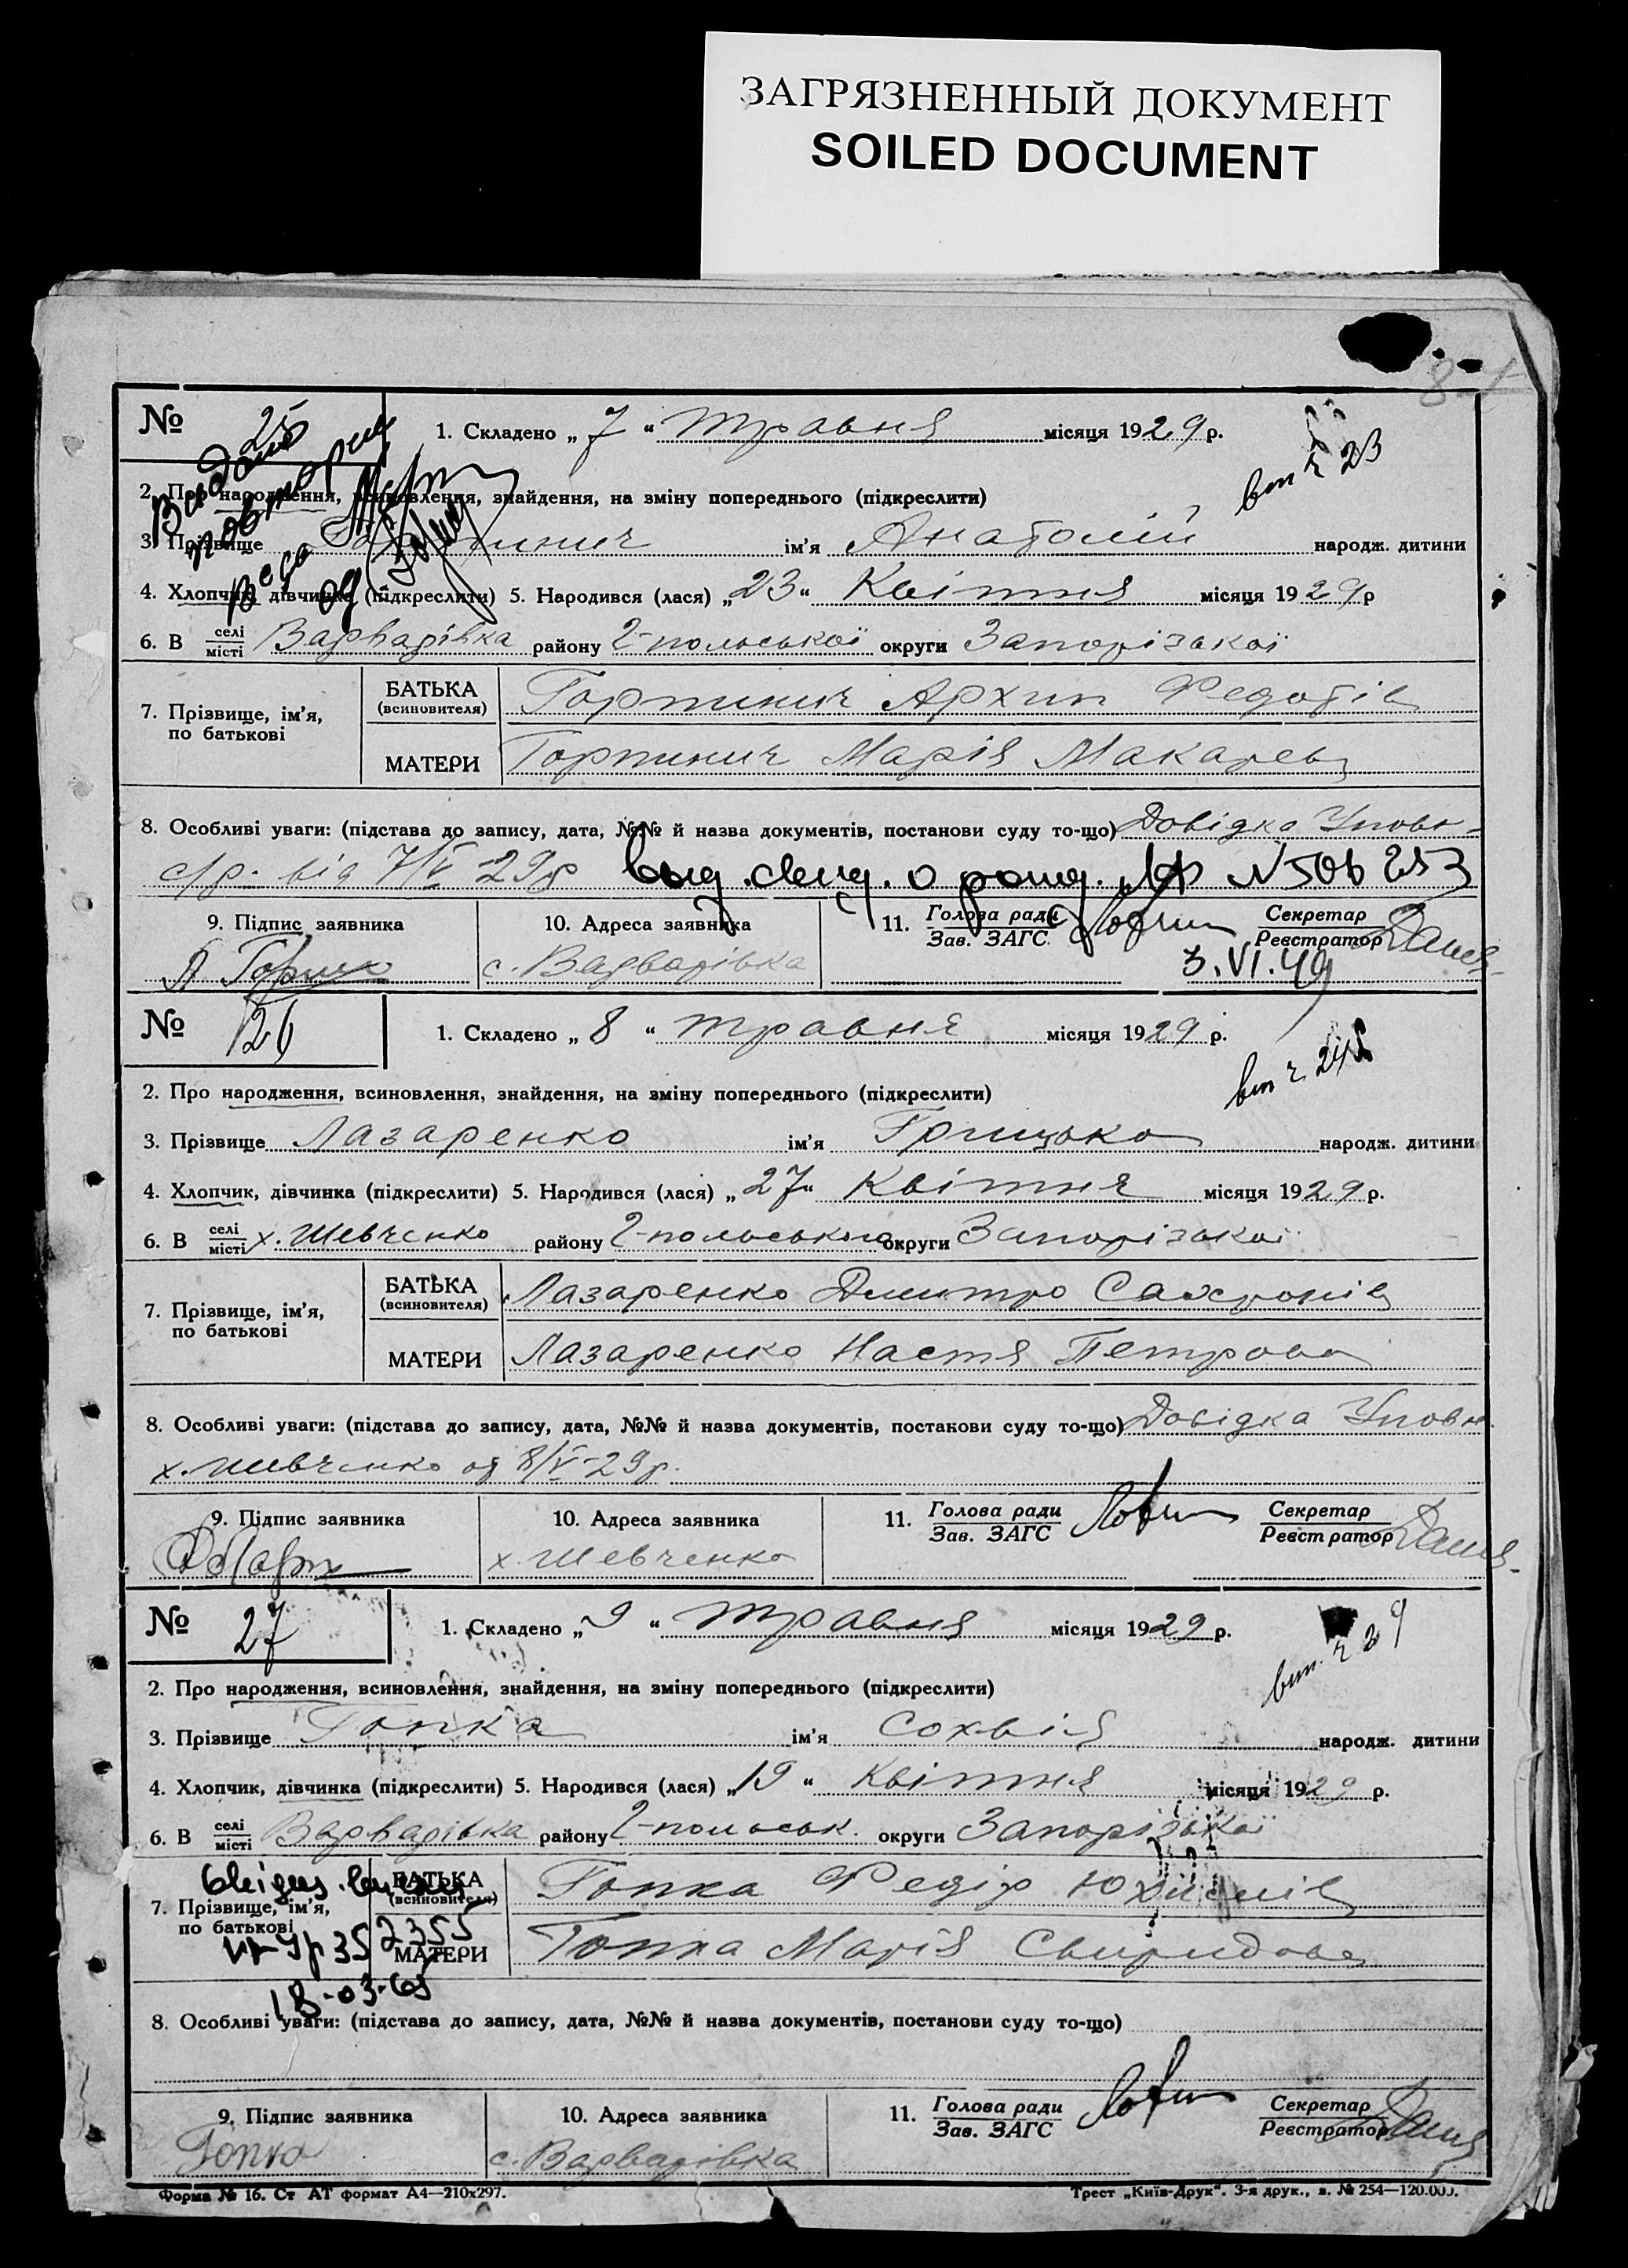 ЗАГРЯЗНЕННЫЙ ДОКУМЕНТ
SOILED DOCUMENT
№ 25
1. Складено „ 7 “ травня місяця 1929 р.
вт ч 23
2. Про народження, всиновлення, знайдення, на зміну попереднього (підкреслити)
3. Прізвище Горпинич ім'я Анатолій народж. дитини
4. Хлопчик, дівчинка (підкреслити) 5. Народився (лася) „23“ Квітня місяця 1929 р
6. В селі/місті Варварівка району Г-польської округи Запорізької
7. Прізвище, ім'я, по батькові
БАТЬКА (всиновителя) Горпинич Архип Федотів
МАТЕРИ Горпинич Марія Макарева
8. Особливі уваги: (підстава до запису, дата, №№ й назва документів, постанови суду то-що) Довідка Уповн-
с/р. від 7/V-29р выд. свид. о рожд. № 506253
9. Підпис заявника
10. Адреса заявника
11. Голова ради/Зав. ЗАГС
Секретар/Реєстратор
с. Варварівка
3.VI.49
№ 26
1. Складено „ 8 “ травня місяця 1929 р.
вт ч 24
2. Про народження, всиновлення, знайдення, на зміну попереднього (підкреслити)
3. Прізвище Лазаренко ім'я Грицько народж. дитини
4. Хлопчик, дівчинка (підкреслити) 5. Народився (лася) „27“ Квітня місяця 1929 р.
6. В селі/місті х. Шевченко району Г-польського округи Запорізької
7. Прізвище, ім'я, по батькові
БАТЬКА (всиновителя) Лазаренко Дмитро Сахронів
МАТЕРИ Лазаренко Настя Петрова
8. Особливі уваги: (підстава до запису, дата, №№ й назва документів, постанови суду то-що) Довідка Уповн.
х. Шевченко од 8/V-29р.
9. Підпис заявника
10. Адреса заявника
11. Голова ради/Зав. ЗАГС
Секретар/Реєстратор
х. Шевченко
№ 27
1. Складено „9 “ травня місяця 1929 р.
2. Про народження, всиновлення, знайдення, на зміну попереднього (підкреслити)
3. Прізвище Гопка ім'я Сохвія народж. дитини
4. Хлопчик, дівчинка (підкреслити) 5. Народився (лася) „19 “ Квітня місяця 1929 р.
6. В селі/місті Варварівка району Г-польськ. округи Запорізької
7. Прізвище, ім'я, по батькові
БАТЬКА (всиновителя) Гопка Федір Юхимів
МАТЕРИ Гопка Марія Свиридова
18-03-65
8. Особливі уваги: (підстава до запису, дата, №№ й назва документів, постанови суду то-що)
9. Підпис заявника
10. Адреса заявника
11. Голова ради/Зав. ЗАГС
Секретар/Реєстратор
Гопка
с. Варварівка
Форма № 16. Ст АТ формат А4—210x297.
Трест „Київ-Друк“. 3-я друк., з. № 254—120.000.